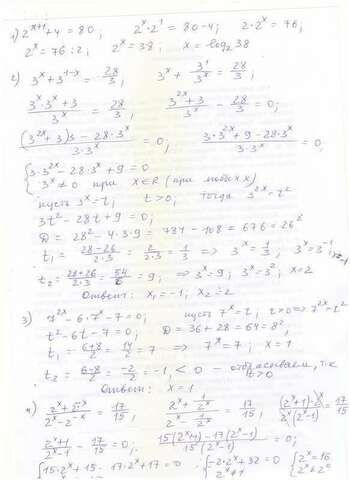 1) 2^{x+1}+4=80, 2^x·2^1=80-4; 2·2^x=76,
2^x=76:2; 2^x=38; x=log_2 38
2) 3^x+3^{1-x}=28/3; 3^x+3^1/3^x=28/3;
(3^x·3^x+3)/3^x=28/3; (3^{2x}+3)/3^x-28/3=0;
((3^{2x}+3)3-28·3^x)/(3·3^x)=0, (3·3^{2x}+9-28·3^x)/(3·3^x)=0,
{3·3^{2x}-28·3^x+9=0
3^x≠0 при x∈R (при любых x)
пусть 3^x=t, t>0, тогда 3^{2x}=t^2
3t^2-28t+9=0;
D=28^2-4·3·9=784-108=676=26^2
t_1=(28-26)/(2·3)=2/(2·3)=1/3 ⇒ 3^x=1/3; 3^x=3^{-1}, x=-1
t_2=(28+26)/(2·3)=54/6=9; ⇒ 3^x=9; 3^x=3^2, x=2
Ответ: x_1=-1, x_2=2
3) 7^{2x}-6·7^x-7=0; пусть 7^x=t; t>0 ⇒ 7^{2x}=t^2
t^2-6t-7=0; D=36+28=64=8^2,
t_1=(6+8)/2=14/2=7 ⇒ 7^x=7; x=1
t_2=(6-8)/2=-2/2=-1, <0 - отбрасываем, т.к. t>0
Ответ: x=1
4) (2^x+2^{-x})/(2^x-2^{-x})=17/15, (2^x+1/2^x)/(2^x-1/2^x)=17/15,
(2^x+1)/(2^x-1)-17/15=0; (15(2^x+1)-17(2^x-1))/(15(2^x-1))=0;
{15·2^x+15-17·2^x+17=0 {-2·2^x+32=0 {2^x=16
2^x≠1 2^x≠0